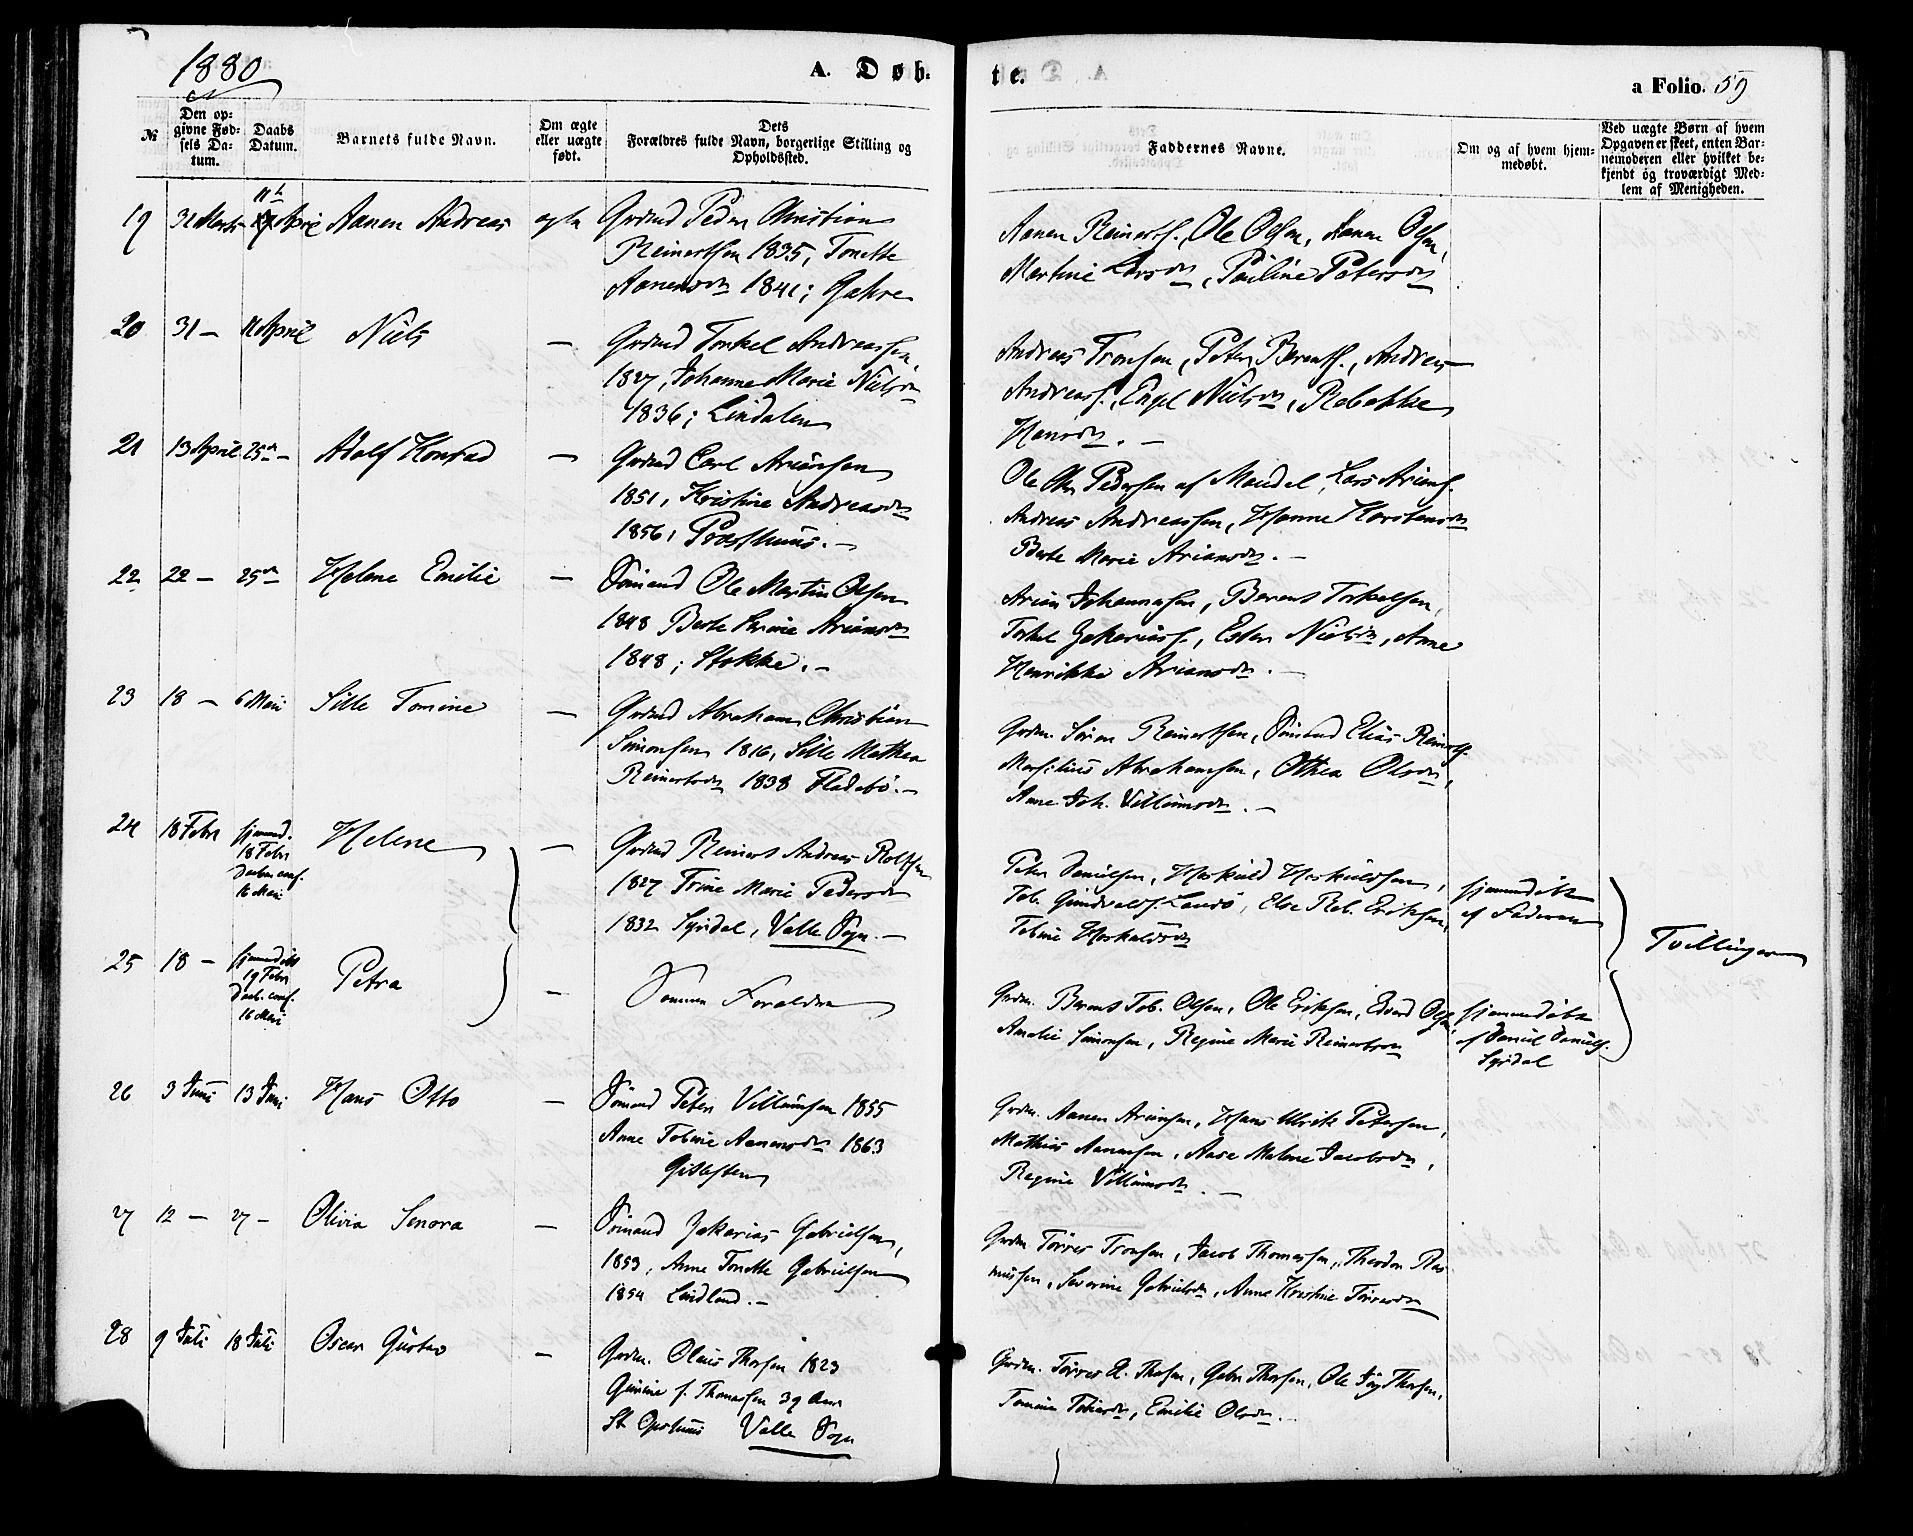 1880
A. Døb-
te.
a Folio. 59
№
Den op-
givne Fød-
sels Da-
tum.
Daabs
Datum.
Barnets fulde Navn.
Om ægte
eller uægte
født.
Dets
Forældres fulde Navn, borgerlige Stilling og
Opholdssted.
Faddernes Navne.
Om og af hvem hjem-
medøbt.
Ved uægte Børn af hvem
Opgaven er skeet, enten Bar-
nemoderen eller hvilket be-
kjendt og troværdigt Med-
lem af Menigheden.
19 31 Marts April Aanen Andreas ægte Grdmd Peder Christian
Reinertsen 1835, Tonette
Aanensdn 1841;
Aanen Reinerts., Ole Olsen, Aanen Olsen,
Martine Larsdn, Pauline Petersdn
20 31 — 11 April Niels — Grdmd Torkel Andreassen
1827, Johanne Marie Nielsdn
1836; Lindalen
Andreas Tronsen, Peter Berents., Andreas
Andreass., Engel Nielsdn, Rebekke
Hansdn. —
21 13 April 25de — Adolf Konrad — Grdmd Carl Ariansen
1851, Kristine Andreasdn
1856, Posthuus. —
Ole Chr Pedersen af Mandal, Lars Arians.
Andreas Andreassen, Hanne Karstensdn
Berte Marie Ariansdn. —
22 22 — 25de Helene Emilie — Sømand Ole Martin Olsen
1848 Berte Trine Ariansdn
1848; Stokke. —
Arian Johannesen, Berent Torkelsen,
Torkel Zakarias., Ester Nielsdn, Anne
Henrikke Ariansdn. —
23 18 — 6 Mai Sille Tomine — Grdmd Abraham Christian
Simonsen 1816, Sille Mathea
Reinertsdn 1838 Fladebö. —
Grdm. Sören Reinertsen, Sömand Elias Reinerts.
Marselius Abrahamsen, Othea Olsdn,
Anne Joh. Villumsdn. —
24 18 Febr hjemmd.
18 Febr
Daaben conf.
16 Mai
Helene — Grdmd Reinert Andreas Rolfsen
1827 Trine Marie Pedersdn
1832 Syrdal, Valle Sogn. —
Peter Danielsen, Haskuld Haskuldsen,
Tob. Gundvalds. Landö, Else Reb. Eriksen,
Tobine Haskuldsdn
hjemmedöbt
af Faderen
Tvillinger
25 18 — hjemmedöbt
19 Febr
Daab. conf.
16 Mai
Petra — Samme Foraldre
Grdm. Berent Tob. Olsen, Ole Eriksen, Edvard Olsen,
Amalie Simonsen, Regine Marie Reinertsdn
hjemmedöbt
af Daniel Daniels.
Syrdal
26 3 Juni 13 Juni Hans Otto — Sömand Peter Villumsen 1855
Anne Tobine Aanensdn 1863
Gitlesten
Grdm. Aanen Ariansen, Hans Ulrik Petersen,
Mathias Aanensen, Aase Malene Jacobsdn,
Regine Villumsdn. —
27 12 — 27 — Olivia Senora — Sömand Zakarias Gabrielsen,
1853, Anne Tonette Gabrielsen
1854 Lindland. —
Grdm Törres Tronsen, Jacob Thomassen, Theodor Ras-
mussen, Severine Gabrielsdn, Anne Kristine Törresdn
28 9 Juli 18 Juli Oscar Gustav — Grdm. Olaus Thorsen 1823
Gunine f. Thomassen 39 Aar
Valle Sogn
Grdm. Törres A. Thorsen, Gabr Thorsen, Ole Thorsen,
Tomine Tobiasdn, Emilie Olsdn. —